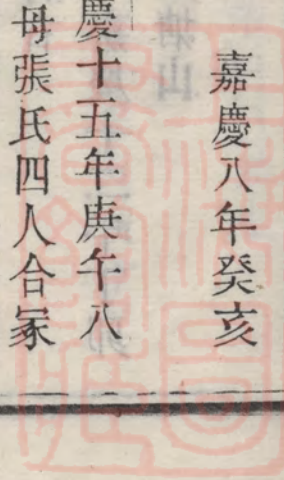 嘉慶八年癸亥
慶十五年庚午八
母張氏四人合冢